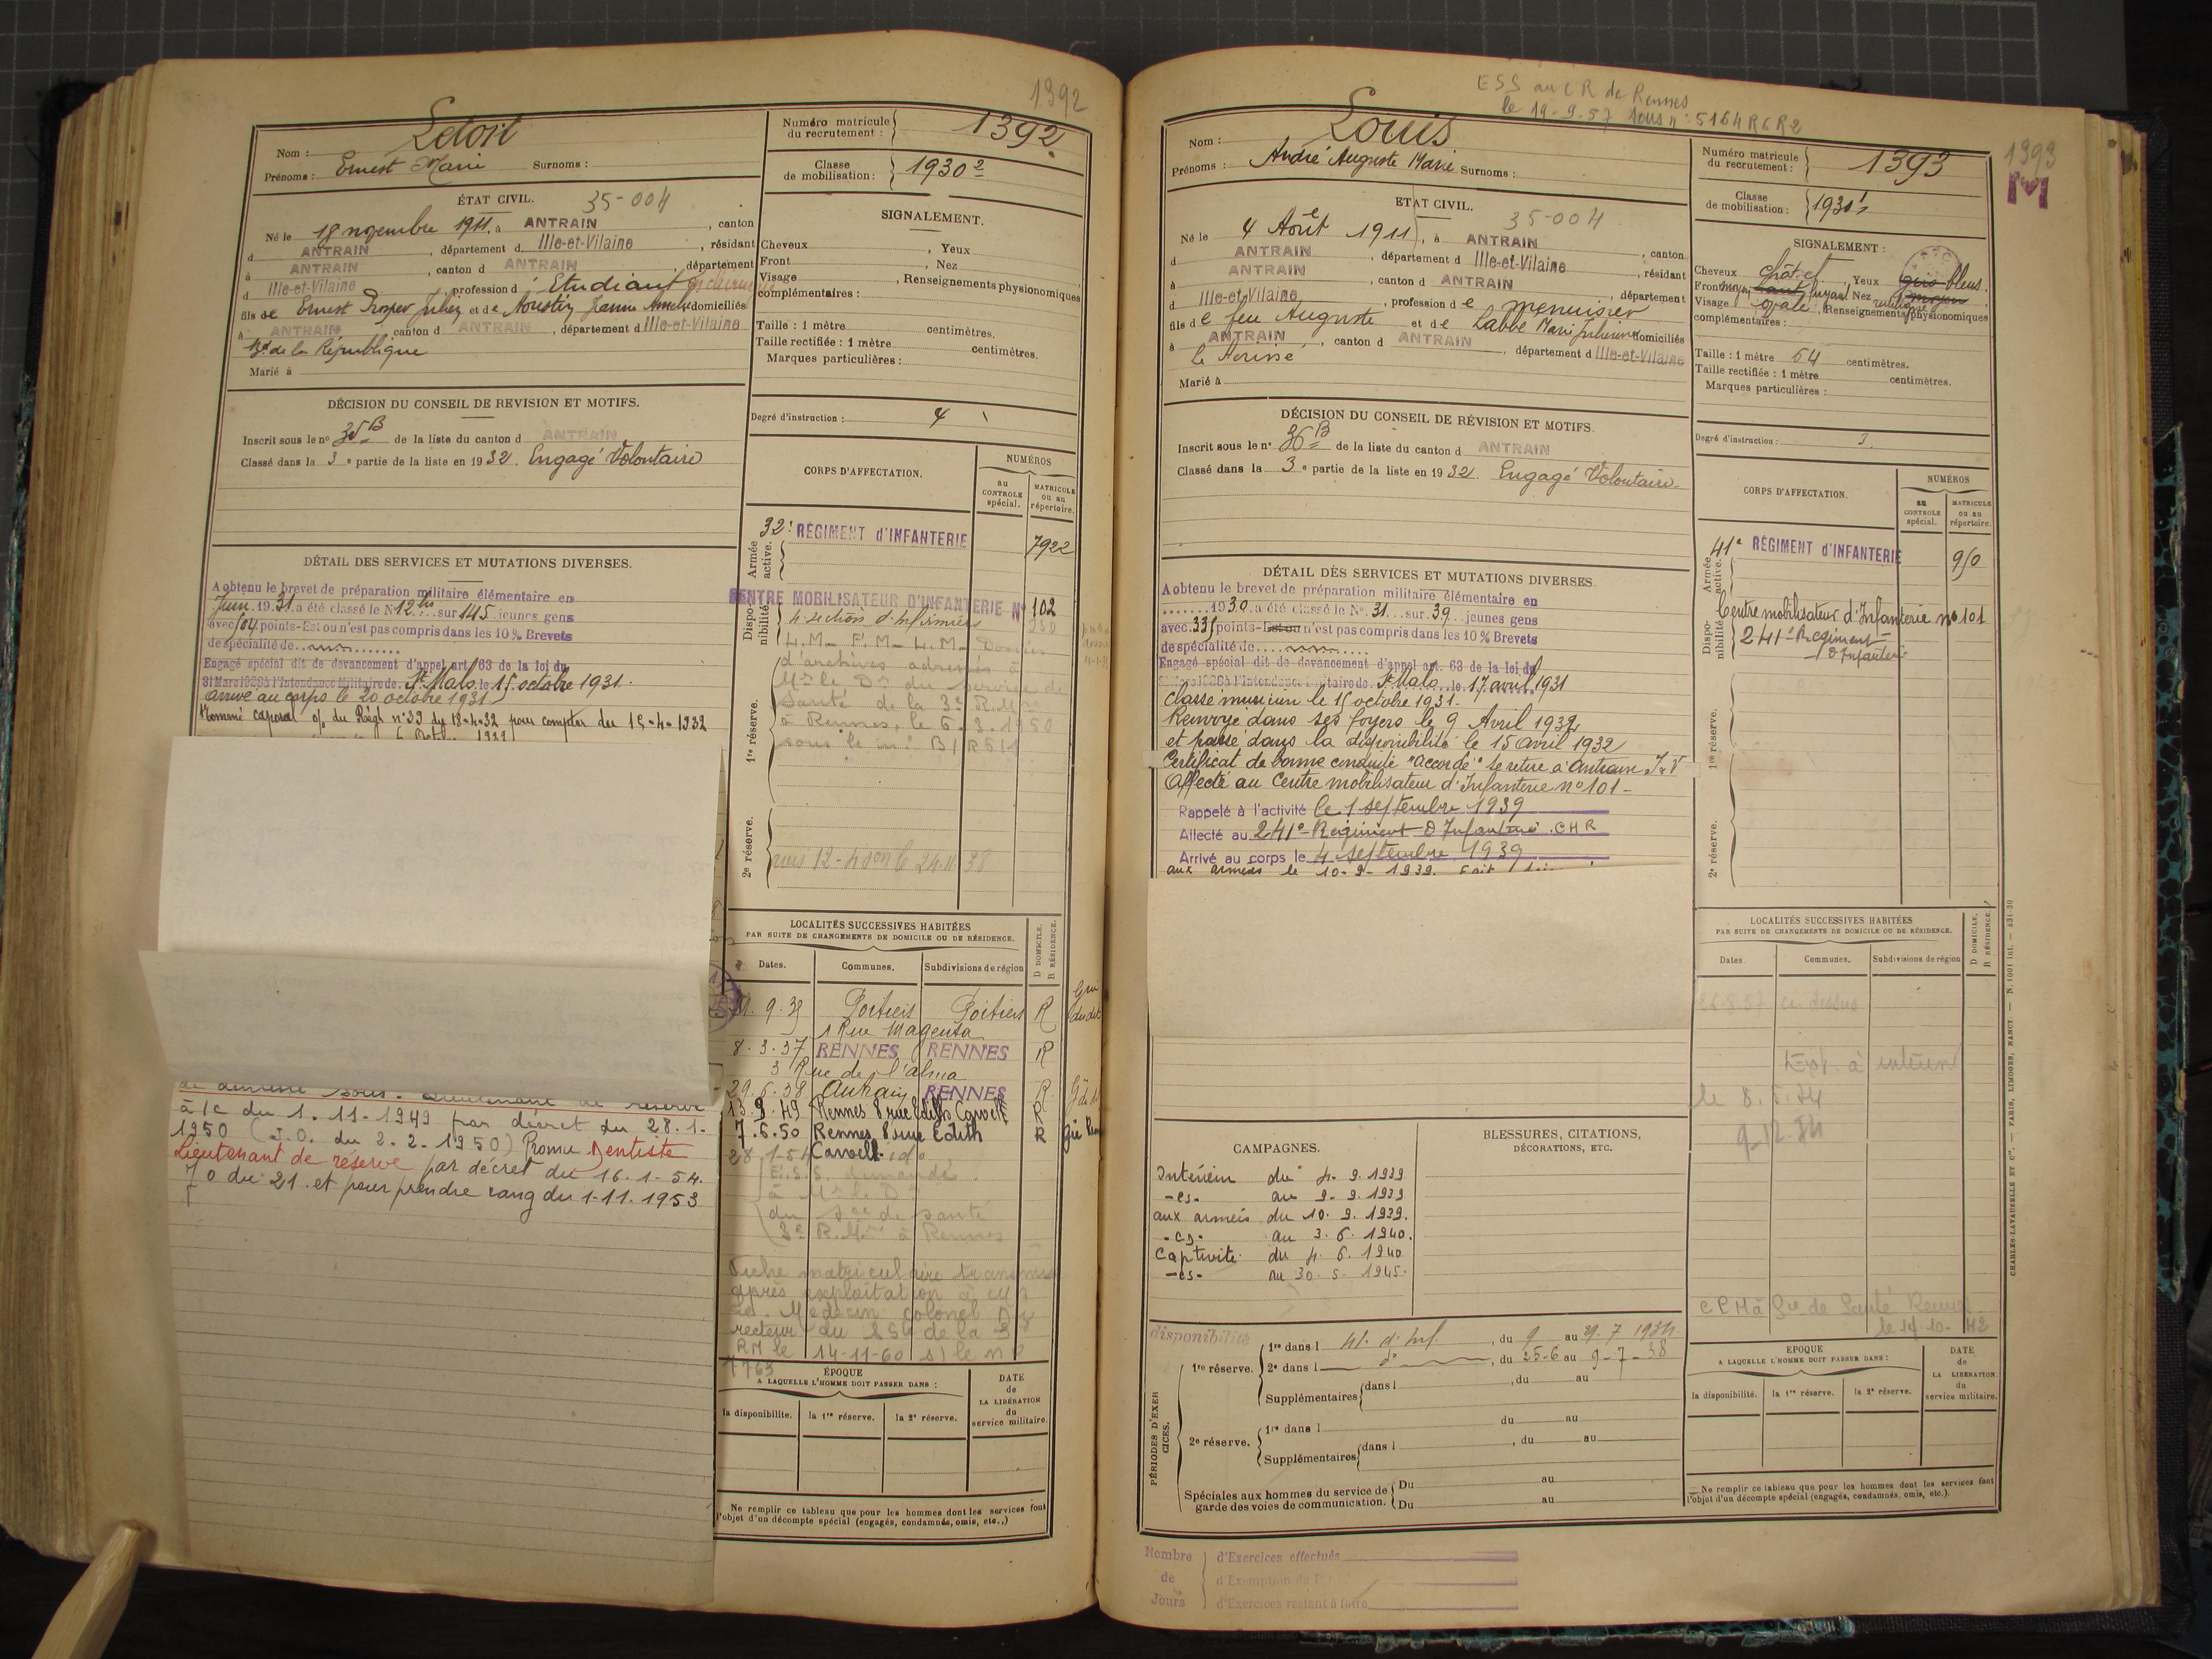 1392
Nom : Letort
Prénoms : Ernest Marie Surnoms :
Numéro matricule du recrutement : 1392
Classe de mobilisation : 1930 2
ÉTAT CIVIL. 35-004
Né le 18 novembre 1911, à ANTRAIN, canton
d ANTRAIN, département d Ille-et-Vilaine, résidant
à ANTRAIN, canton d ANTRAIN, département
d Ille-et-Vilaine profession d Etudiant
fils de Ernest Prosper Julien et de Jeanne domiciliés
à ANTRAIN, canton d ANTRAIN, département d Ille-et-Vilaine
Bd de la République
Marié à
SIGNALEMENT.
Cheveux , Yeux
Front , Nez
Visage , Renseignements physionomiques
complémentaires :
Taille : 1 mètre centimètres.
Taille rectifiée : 1 mètre centimètres.
Marques particulières :
Degré d'instruction : 4
DÉCISION DU CONSEIL DE REVISION ET MOTIFS.
Inscrit sous le n° 35 B de la liste du canton d ANTRAIN
Classé dans la 3e partie de la liste en 1932. Engagé Volontaire
CORPS D'AFFECTATION.
NUMÉROS
au CONTROLE spécial.
MATRICULE ou au répertoire.
Armée active.
32e RÉGIMENT d'INFANTERIE 7922
Disponibilité
CENTRE MOBILISATEUR D'INFANTERIE N° 102
4 section d'infirmiers
d'archives adressés à
Mr le Dr du Service de
Santé de la 3e
à Rennes, le 6.3.1950
1re réserve.
2e réserve.
DÉTAIL DES SERVICES ET MUTATIONS DIVERSES.
A obtenu le brevet de préparation militaire élémentaire en
Juin 1931 a été classé le N° 12 bis sur 145 jeunes gens
avec 504 points-Est ou n'est pas compris dans les 10% Brevets
de spécialité de
Engagé spécial dit de devancement d'appel art. 63 de la loi du
31 Mars 1928 à l'Intendance Militaire de St Malo le 15 octobre 1931.
arrivé au corps le 20 octobre 1931
Nommé caporal o/ du Régt n° 33 du 18-4-32 pour compter du 15-4-1932
à/c du 1.11-1949 par décret du 28.1-
1950 (J.O. du 2.2.1950) Promu Dentiste
Lieutenant de réserve par décret du 16.1-54.
JO du 21 et pour prendre rang du 1-11.1953
LOCALITÉS SUCCESSIVES HABITÉES
PAR SUITE DE CHANGEMENTS DE DOMICILE OU DE RÉSIDENCE.
Dates. Communes. Subdivisions de région
D DOMICILE. R RÉSIDENCE.
9.35 Poitiers Poitiers R
1 Rue Magenta
8.3.37 RENNES RENNES R
3 Rue de l'alma
29.6.38 Antrain RENNES R
13.9.49 Rennes 8 rue Edith Cavell R
7.6.50 Rennes 8 rue Edith R
28.1-54 Cavell
E.S.S. demandé
à Mr le Dr
du Sce de santé
à Rennes
Fiche matriculaire transmise
après exploitation à
Médecin colonel Di
recteur du SS de la 3
RM le 14-11-60 s) le n°
1763
ÉPOQUE
A LAQUELLE L'HOMME DOIT PASSER DANS :
la disponibilité. la 1re réserve. la 2e réserve.
DATE de LA LIBÉRATION du service militaire.
Ne remplir ce tableau que pour les hommes dont les services font
l'objet d'un décompte spécial (engagés, condamnés, omis, etc.,)
ESS au CR de Rennes
le 19-9-57 sous n° 5164 R6R2
1393
M
Nom : Louis
Prénoms : André Auguste Marie Surnoms :
Numéro matricule du recrutement : 1393
Classe de mobilisation : 1930 1
ETAT CIVIL. 35-004
Né le 4 Août 1911, à ANTRAIN
d ANTRAIN, département d Ille-et-Vilaine, canton
à ANTRAIN, canton d ANTRAIN, résidant
d Ille-et-Vilaine, profession de menuisier département
fils de feu Auguste et de Labbé Marie Julienne domiciliés
à ANTRAIN, canton d ANTRAIN, département d Ille-et-Vilaine
Marié à
SIGNALEMENT :
Cheveux chât. Yeux gris bleus.
Front moyen haut fuyant Nez rectiligne moyen
Visage ovale, Renseignements physionomiques
complémentaires :
Taille : 1 mètre 64 centimètres.
Taille rectifiée : 1 mètre centimètres.
Marques particulières :
Degré d'instruction : 3.
DÉCISION DU CONSEIL DE RÉVISION ET MOTIFS.
Inscrit sous le n° 36 B de la liste du canton d ANTRAIN
Classé dans la 3e partie de la liste en 1932. Engagé Volontaire
CORPS D'AFFECTATION.
NUMÉROS
au CONTROLE spécial.
MATRICULE ou au répertoire.
Armée active.
41e RÉGIMENT d'INFANTERIE 950
Disponibilité
Centre mobilisateur d'Infanterie n° 101
241e Régiment
d'Infanterie
1re réserve.
2e réserve.
DÉTAIL DES SERVICES ET MUTATIONS DIVERSES.
A obtenu le brevet de préparation militaire élémentaire en
1930. a été classé le N° 31 sur 39 jeunes gens
avec 335 points-Est ou n'est pas compris dans les 10% Brevets
de spécialité de
Engagé spécial dit de devancement d'appel art. 63 de la loi du
à l'Intendance Militaire de St Malo le 17 avril 1931
Classé musicien le 15 octobre 1931.
Renvoyé dans ses foyers le 9 Avril 1932
et passé dans la disponibilité le 15 avril 1932
Certificat de bonne conduite "accordé" se retire à Antrain I.V
Affecté au Centre mobilisateur d'Infanterie n° 101 -
Rappelé à l'activité le 1 septembre 1939
Affecté au 241e Régiment d'Infanterie CHR
Arrivé au corps le 4 septembre 1939
aux armées le 10-9-1939.
LOCALITÉS SUCCESSIVES HABITÉES
PAR SUITE DE CHANGEMENTS DE DOMICILE OU DE RÉSIDENCE.
Dates. Communes. Subdivisions de région
D DOMICILE. R RÉSIDENCE.
26.8.57 ci dessus
le 8.5.74
CAMPAGNES.
Intérieur du 4.9.1939
-es- au 9.9.1939
aux armées du 10.9.1939.
-es- au 3.6.1940.
Captivité du 4.6.1940
-es- au 30.5.1945.
BLESSURES, CITATIONS, DÉCORATIONS, ETC.
PÉRIODES D'EXERCICES.
disponibilité
1re réserve.
1re dans l 41. d'Inf. , du 9 au 29.7 1934
2e dans l do , du 25-6 au 9-7-38
Supplémentaires dans l , du au
du au
2e réserve.
1re dans l
Supplémentaires dans l , du au
Spéciales aux hommes du service de garde des voies de communication.
Du au
Du au
ÉPOQUE
A LAQUELLE L'HOMME DOIT PASSER DANS :
la disponibilité. la 1re réserve. la 2e réserve.
DATE de LA LIBÉRATION du service militaire.
Ne remplir ce tableau que pour les hommes dont les services font
l'objet d'un décompte spécial (engagés, condamnés, omis, etc.).
CHARLES-LAVAUZELLE ET Cie. — PARIS, LIMOGES, NANCY. — N. 1001 int. — 231-30
Nombre de Jours
d'Exercices effectués
d'Exemption de
d'Exercices restant à faire